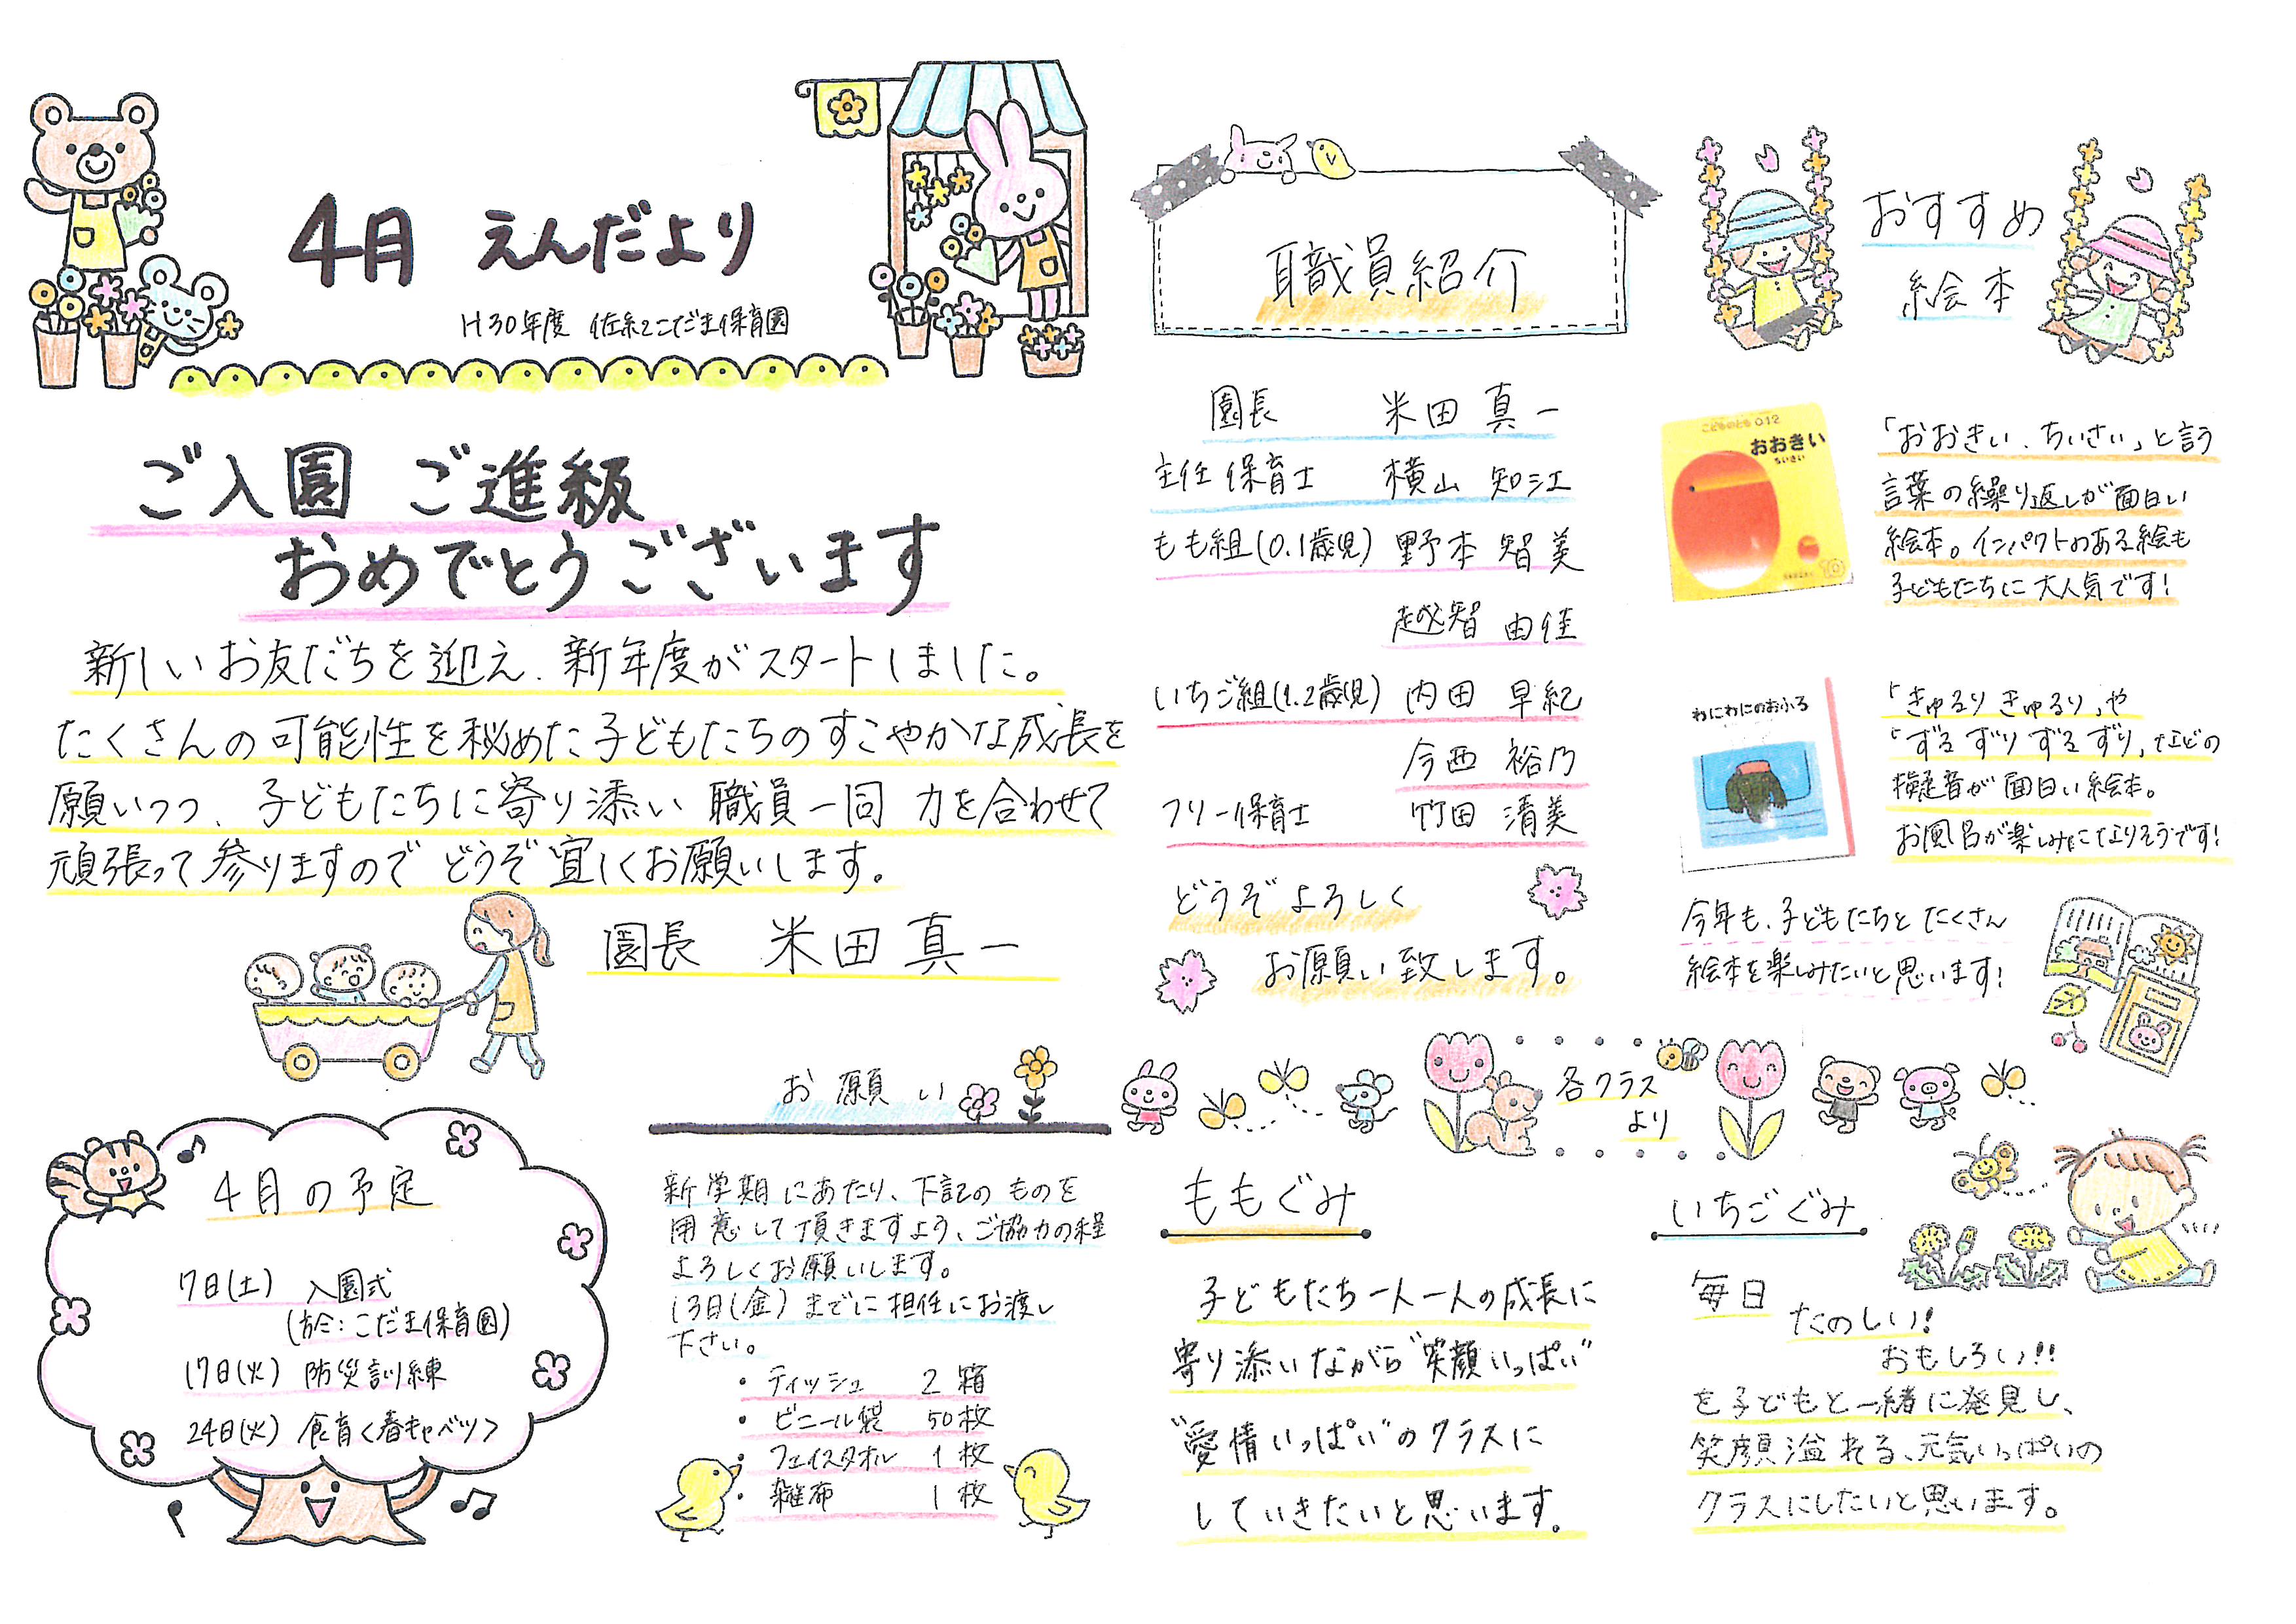 4月 えんだより
H30年度 佐糸2こだま保育園
ご入園 ご進級
おめでとうございます
新しいお友だちを迎え、新年度がスタートしました。
たくさんの可能性を秘めた子どもたちのすこやかな成長を
願いつつ、子どもたちに寄り添い 職員一同 力を合わせて
頑張って参りますので どうぞ宜しくお願いします。
園長 米田 真一
4月の予定
7日(土) 入園式
(於:こだま保育園)
17日(火) 防災訓練
24日(火) 食育<春キャベツ>
お願い
新学期にあたり、下記のものを
用意して頂きますよう、ご協力の程
よろしくお願いします。
13日(金)までに担任にお渡し
下さい。
・ティッシュ 2箱
・ビニール袋 50枚
・フェイスタオル 1枚
・雑布 1枚
職員紹介
園長 米田 真一
主任保育士 横山 知江
もも組(0.1歳児) 野本 智美
越智 由佳
いちご組(1.2歳児) 内田 早紀
今西 裕乃
フリー保育士 竹田 清美
どうぞよろしく
お願い致します。
おすすめ
絵本
こどものとも 0.1.2
おおきい
ちいさい
「おおきい、ちいさい」と言う
言葉の繰り返しが面白い
絵本。インパクトのある絵も
子どもたちに大人気です!
わにわにのおふろ
「きゅるり きゅるり」や
「ずる ずり ずる ずり」などの
擬音が面白い絵本。
お風呂が楽しみになりそうです!
今年も、子どもたちと たくさん
絵本を楽しみたいと思います!
各クラス
より
ももぐみ
子どもたち一人一人の成長に
寄り添いながら"笑顔いっぱい"
"愛情いっぱい"のクラスに
していきたいと思います。
いちごぐみ
毎日
たのしい!
おもしろい!!
を子どもと一緒に発見し、
笑顔溢れる、元気いっぱいの
クラスにしたいと思います。